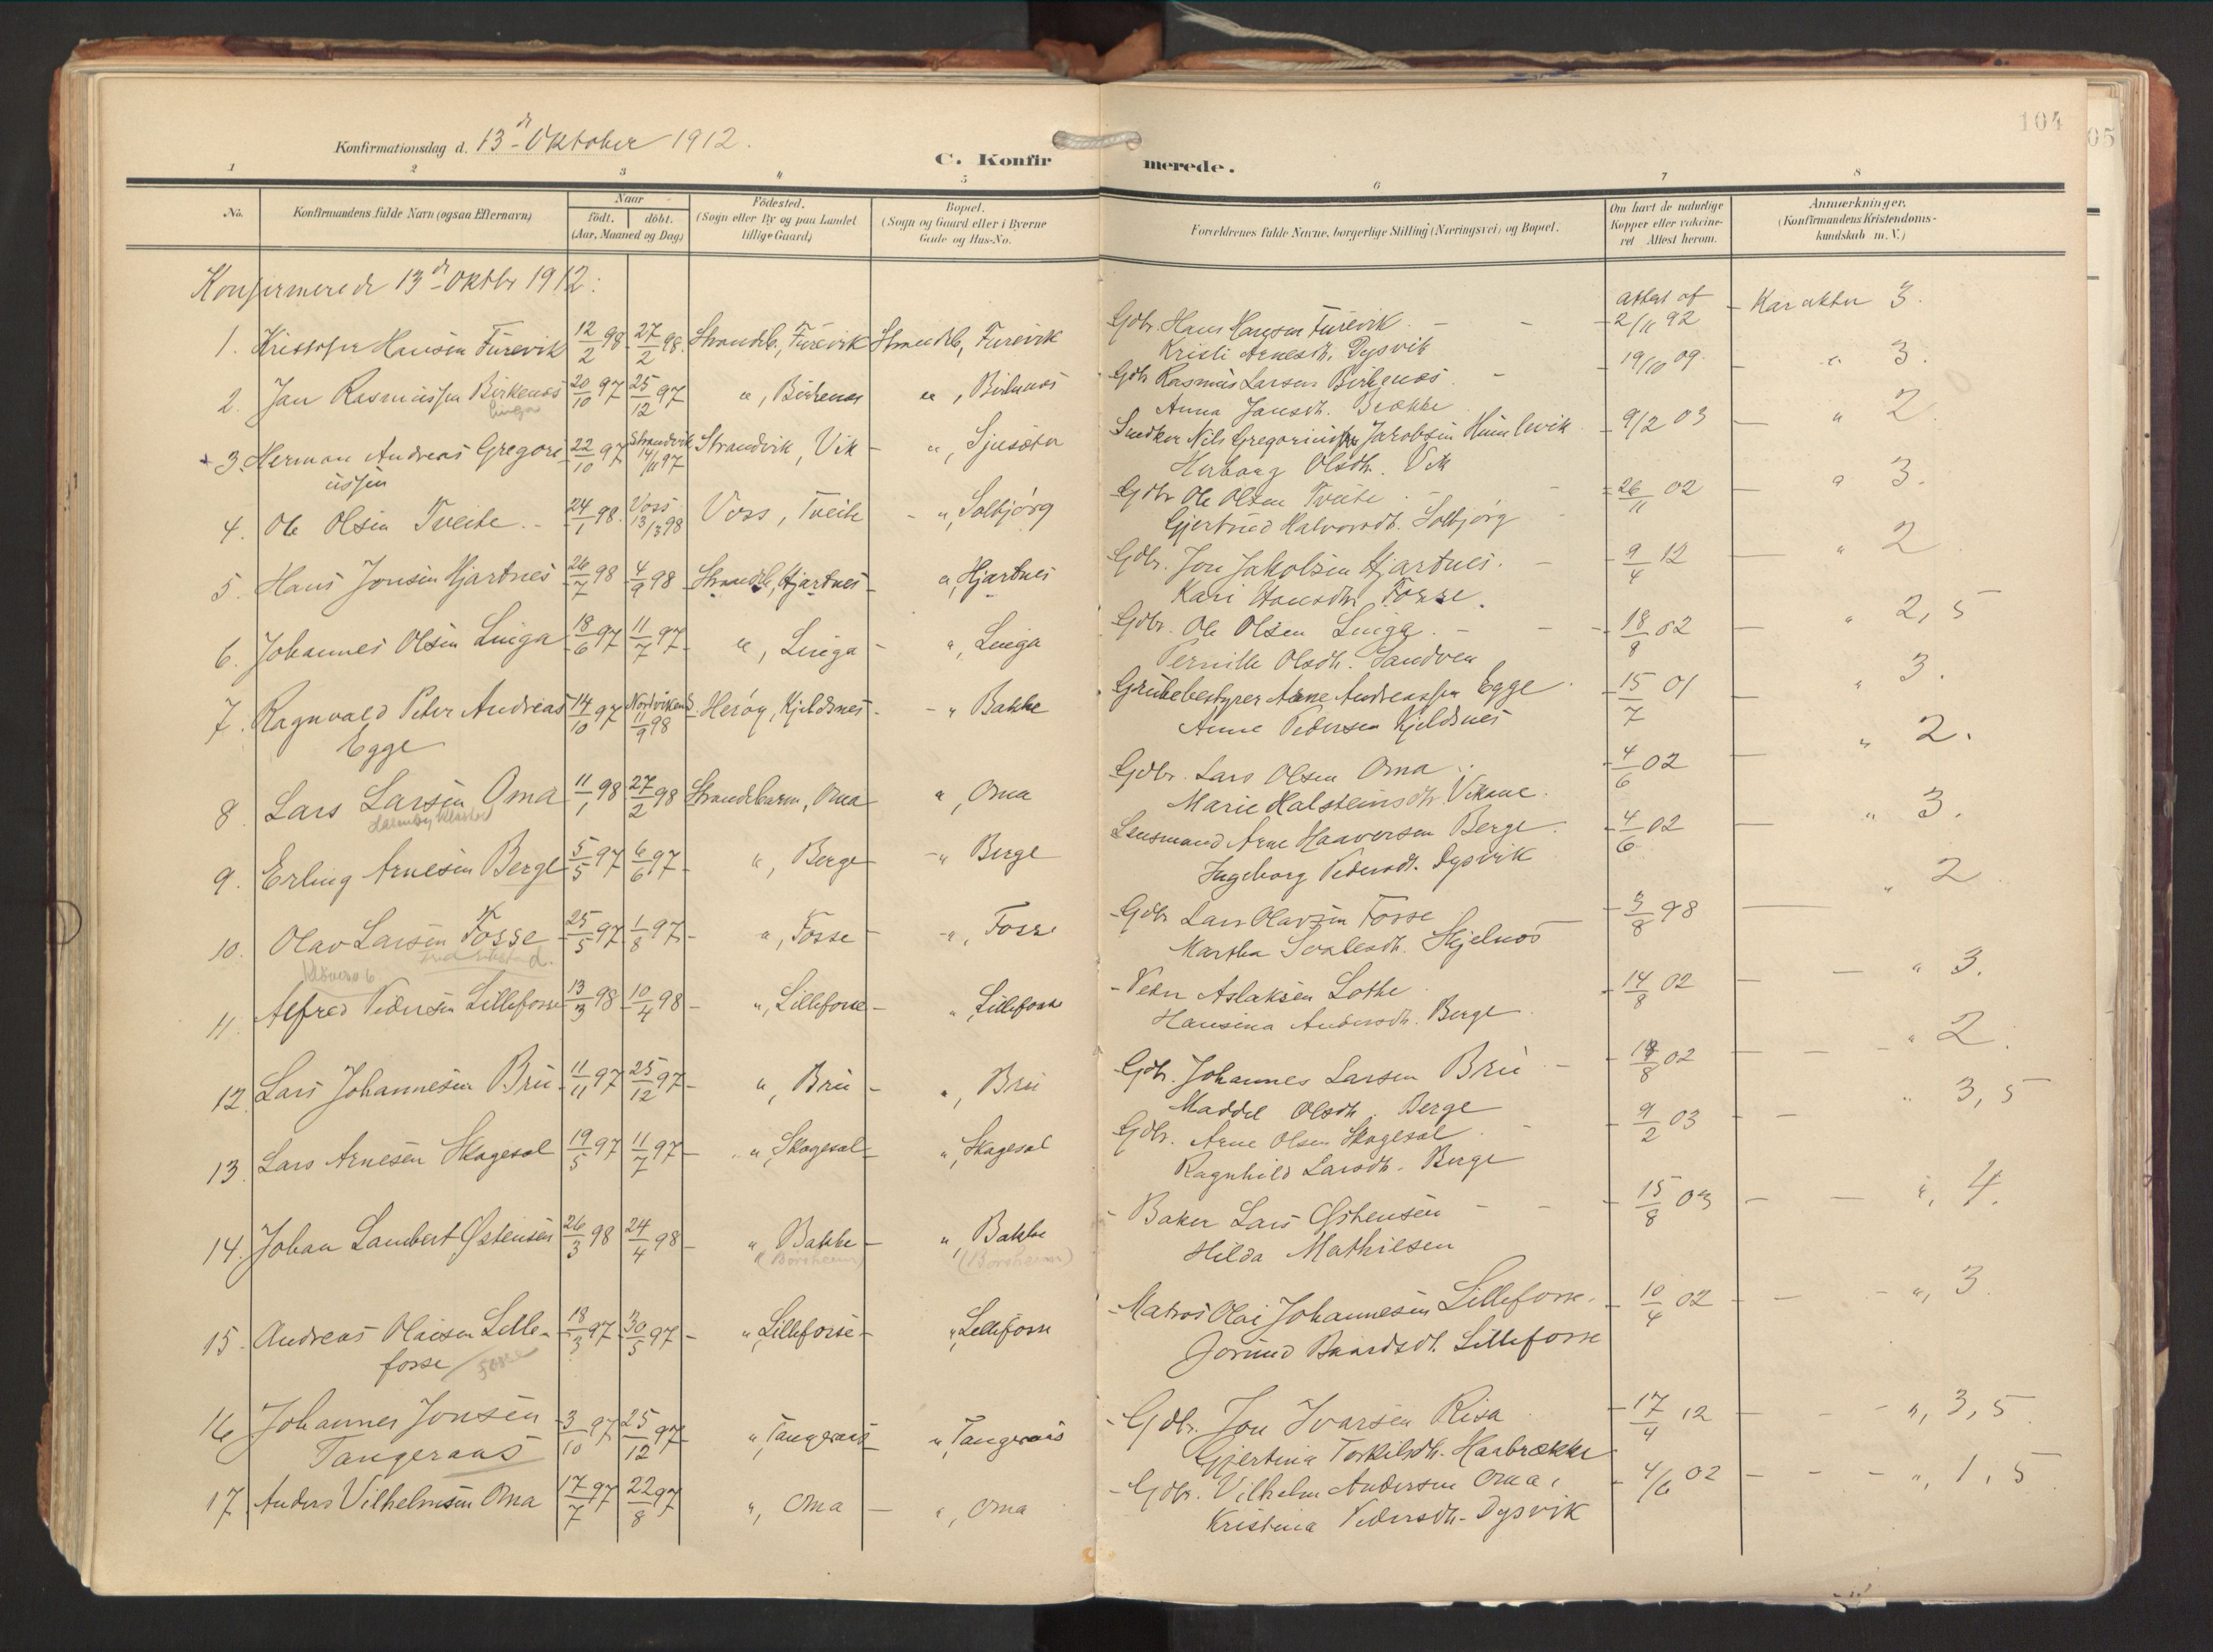 104
05
Konfirmationsdag d. 13de Oktober 1912.
C. Konfirmerede.
1 2 3 4 5 6 7 8
No. Konfirmandens fulde Navn (ogsaa Efternavn) Naar født. døbt. (Aar, Maaned og Dag) Fødested. (Sogn eller By og paa Landet tillige Gaard) Bopæl. (Sogn og Gaard eller i Byerne Gade og Hus-No. Forældrenes fulde Navne, borgerlige Stilling (Næringsvei) og Bopæl. Om havt de naturlige Kopper eller vakcineret Attest herom. Anmærkninger. (Konfirmandens Kristendomskundskab m. V.)
Konfirmerede 13de Oktbr 1912:
1. Kristofer Hansen Furevik 12/2 98 27/2 98. Strandeb., Furevik Strandeb, Furevik Gdbr. Hans Hansen Furevik attest af 2/11 92 Karakter 3.
Kristi Arnesdt. Dysvik
2. Jan Rasmussen Birkenes 20/10 97 25/12 97 " , Birkenes " , Birkenes Gdbr Rasmus Larsen Birkenes 19/10 09 " 3.
Linga
Anna Jansdt. Brække
3. Herman Andreas Gregori 22/10 97 Strandvik 14/11 97 Strandvik, Vik " , Sjusæter Snedker Nils Gregoriussen Jakobsen Humlevik 9/2 03 " 2.
ussen
Herborg Olsdtr. Vik
4. Ole Olsen Tveite 24/1 98. Voss 13/3 98 Voss, Tveite " , Solbjørg Gdbr Ole Olsen Tveite 26/11 02 " 3.
Gjertrud Halvorsdt. Solbjørg
5. Hans Jonsen Hjartnes 26/7 98 4/9 98 Strandeb, Hjartnes " , Hjartnes Gdbr. Jon Jakobsen Hjartnes. 9/4 12 " 2.
Kari Hansdtr Fosse.
6. Johannes Olsen Linga 18/6 97 11/7 97 " , Linga " , Linga Gdbr. Ole Olsen Linga. 18/9 02 " 2,5
Pernille Olsdt. Sandven
7. Ragnvald Peter Andreas 14/10 97 11/9 98 Herøy, Kjeldsnes " Bakke Grubebestyrer Arne Andreassen Egge 15/7 01 " 3.
Egge
Anne Pedersen Kjeldsnes
8. Lars Larsen Oma 11/1 98 27/2 98 Strandebarm, Oma " , Oma Gdbr. Lars Olsen Oma 4/6 02 " 2.
Marie Halsteinsdtr. Vikane.
9. Erling Arnesen Berge 5/5 97 6/6 97 " , Berge " Berge Lensmand Arne Haaversen Berge. 4/6 02 " 3.
Ingeborg Pedersdt. Dysvik
10. Olav Larsen Fosse 25/5 97 1/8 97 " , Fosse " , Fosse Gdbr Lars Olavsen Fosse 3/8 98 " 2
Martha Sjovlesdt. Skjelnes
11. Alfred Pedersen Lillefosse 13/3 98 10/4 98 " , Lillefosse " , Lillefosse Peder Aslaksen Lothe 14/8 02 " 3.
Hansina Andersdt. Berge
12. Lars Johannesen Bru 11/11 97 25/12 97 " , Bru " , Bru Gdbr. Johannes Larsen Bru 18/8 02 " 2.
Maddel Olsdtr. Berge
13. Lars Arnesen Skogesal 19/5 97 11/7 97 " , Skogesal " , Skagesal Gdbr. Arne Olsen Skogesal 9/2 03 " 3,5
Ragnhild Larsdt. Berge
14. Johan Lambert Østensen 26/3 98 24/4 98 " Bakke " Bakke Baker Lars Østensen 15/8 03 " , 4.
(Borsheim) (Borsheim)
Hilda Mathiesen
15. Andreas Olaisen Lille- 18/3 97 30/5 97 " , Lillefosse " Lillefosse Matros Olai Johannesen Lillefosse. 10/4 02 " , 3
fosse / Fosse
Jorund Baardsdt. Lillefosse
16 Johannes Jonsen 3/10 97 25/12 97 " , Tangeraas " Tangeraas Gdbr. Jon Ivarsen Risa 17/4 12 " , 3,5
Tangeraas
Gjertina Torkilsdtr. Haabrække
17. Anders Vilhelmsen Oma 17/7 97 22/8 97 " , Oma " , Oma Gdbr. Vilhelm Andersen Oma, 4/6 02 " , 1,5
Kristina Pedersdtr. Dysvik